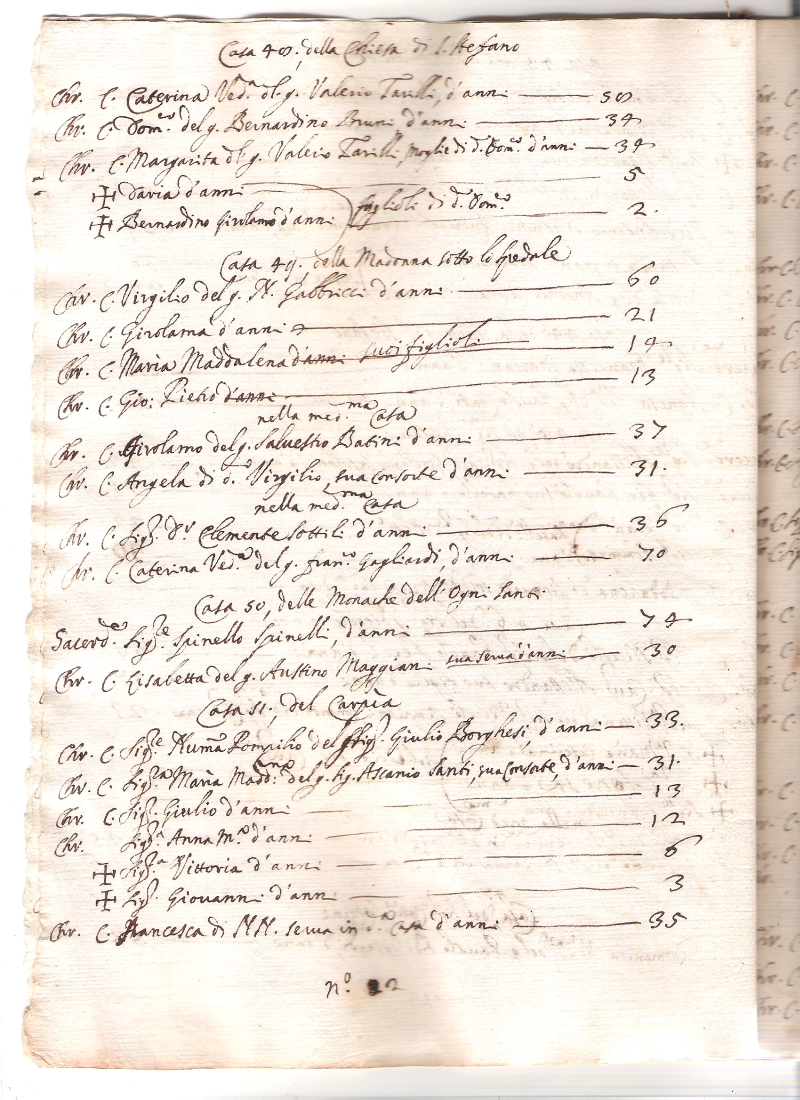 Casa 48, della Chiesa di S. Stefano
Chr. C. Caterina Ved.a del q. Valerio Tarilli, d'anni 58
Chr. C. Dom.co del q. Bernardino Bruni d'anni 34
Chr. C. Margarita del q. Valerio Tarilli moglie di d.o Dom.co d'anni 34
✠ Daria d'anni 5
✠ Bernardino Girolamo d'anni figlioli di d.o Dom.co 2.
Casa 49, della Madonna sotto lo spedale
Chr. C. Virgilio del q. N. Gabbricci d'anni 60
Chr. C. Girolama d'anni 21
Chr. C. Maria Maddalena d'anni suoi figlioli 14
Chr. C. Gio: Pietro d'anni 13
nella med.ma Casa
Chr. C. Girolamo del q. Salvestro Batini d'anni 37
Chr. C. Angela di d.o Virgilio, sua consorte d'anni 31.
nella med.ma Casa
Chr. C. Sig.r D.r Clemente Sottili d'anni 36
Chr. C. Caterina Ved.a del q. Fran.co Gagliardi, d'anni 70
Casa 50, delle Monache dell'Ogni Santi
Sacerd.e Sig.re Spinello Spinelli, d'anni 74
Chr. C. Lisabetta del q. Austino Maggiani sua serva d'anni 30
Casa 51, del Carpia
Chr. C. Sig.re Numa Pompilio del Sig.r Giulio Borghesi, d'anni 33.
Chr. C. Sig.ra Maria Madd.na del q. Sig. Ascanio Santi, sua Consorte, d'anni 31.
Chr. C. Sig.r Giulio d'anni 13
Chr. Sig.ra Anna M.a d'anni 12
✠ Sig.ra Vittoria d'anni 6
✠ Sig.r Giovanni d'anni 3
Chr. C. Francesca di N.N. serva in d.a casa d'anni 35
n.o 22